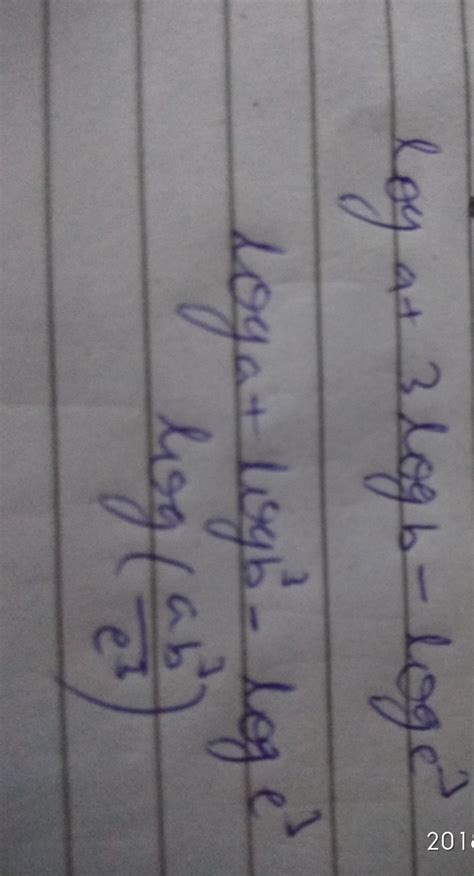 log a + 3 log b - log e³
log a + log b³ - log e³
log (ab³/e³)
201